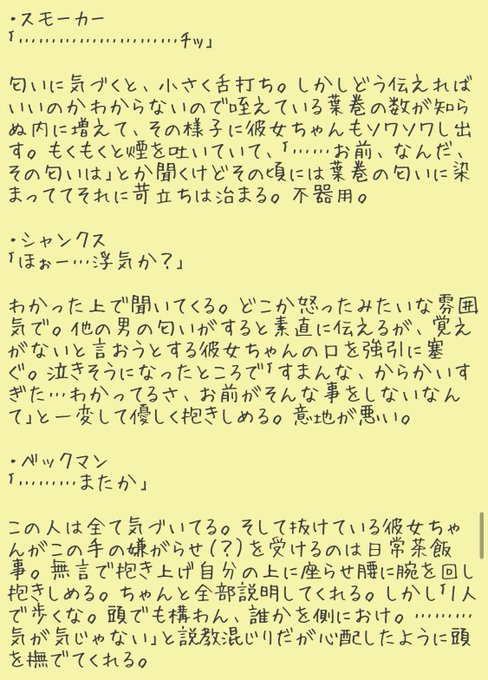 ・スモーカー
「……………………チッ」
匂いに気づくと、小さく舌打ち。しかしどう伝えれば
いいのかわからないので咥えている葉巻の数が知ら
ぬ内に増えて、その様子に彼女ちゃんもソワソワし出
す。もくもくと煙を吐いていて、「……お前、なんだ、
その匂いは」とか聞くけどその頃には葉巻の匂いに染
まっててそれに苛立ちは治まる。不器用。
・シャンクス
「ほぉー…浮気か？」
わかった上で聞いてくる。どこか怒ったみたいな雰囲
気で。他の男の匂いがすると素直に伝えるが、覚え
がないと言おうとする彼女ちゃんの口を強引に塞
ぐ。泣きそうになったところで「すまんな、からかいす
ぎた…わかってるさ、お前がそんな事をしないなん
て」と一変して優しく抱きしめる。意地が悪い。
・ベックマン
「………またか」
この人は全て気づいてる。そして抜けている彼女ちゃ
んがこの手の嫌がらせ(？)を受けるのは日常茶飯
事。無言で抱き上げ自分の上に座らせ腰に腕を回し
抱きしめる。ちゃんと全部説明してくれる。しかし「1人
で歩くな。頭でも構わん、誰かを側におけ。………
気が気じゃない」と説教混じりだが心配したように頭
を撫でてくれる。